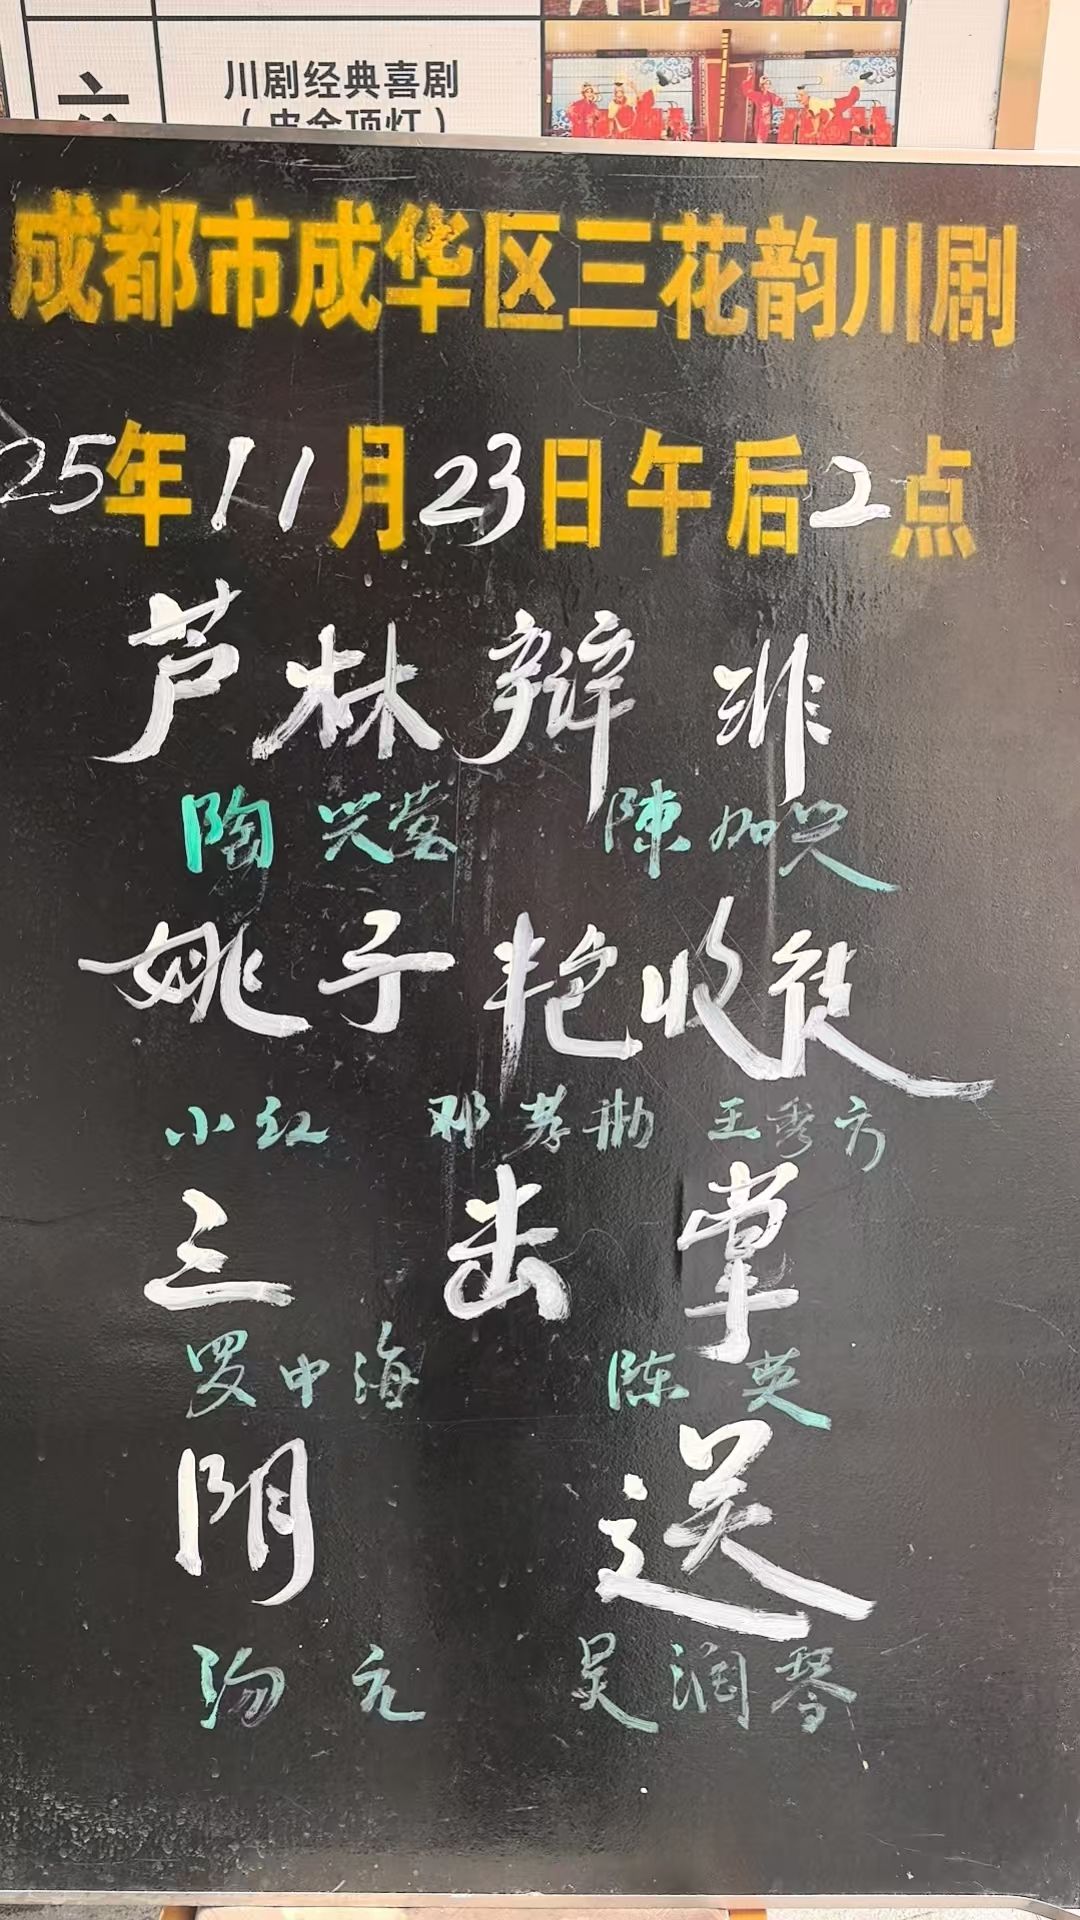 六
川剧经典喜剧
（皮金顶灯）
成都市成华区三花韵川剧
25年11月23日午后2点
芦林辩非
陶兴莹 陳加兴
姚子艳收徒
小红 邓孝勘 王秀方
三击掌
罗中海 陈英
阴送
汤元 吴润琴